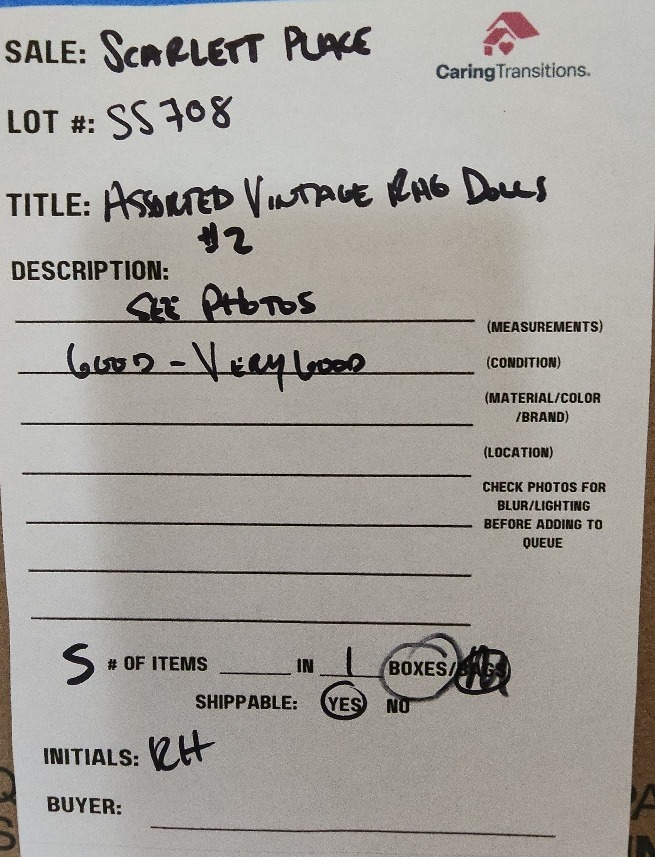 SALE: SCARLETT PLACE
CaringTransitions.
LOT #: SS708
TITLE: ASSORTED VINTAGE RHG DOLLS
#2
DESCRIPTION:
SEE PHOTOS
(MEASUREMENTS)
GOOD - VERY GOOD
(CONDITION)
(MATERIAL/COLOR
/BRAND)
(LOCATION)
CHECK PHOTOS FOR
BLUR/LIGHTING
BEFORE ADDING TO
QUEUE
S # OF ITEMS IN 1 BOXES/BAGS
SHIPPABLE: YES NO
INITIALS: RH
BUYER: